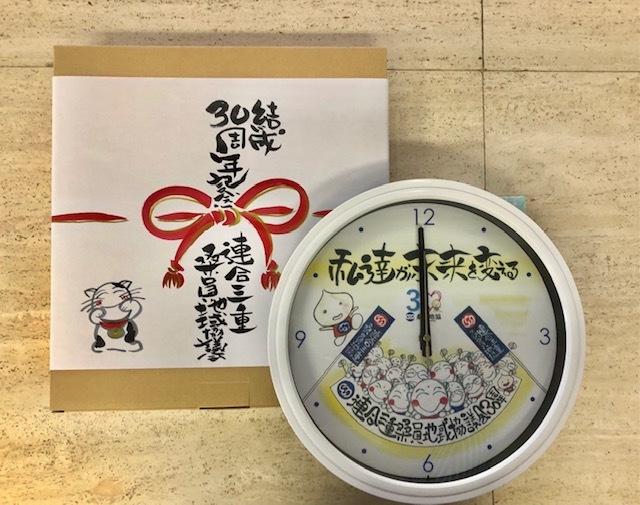 結成
30周年記念
連合三重
桑員地域協議会
12
3
6
9
私達が未来を変る
30
連合三重桑員地域協議会30周年